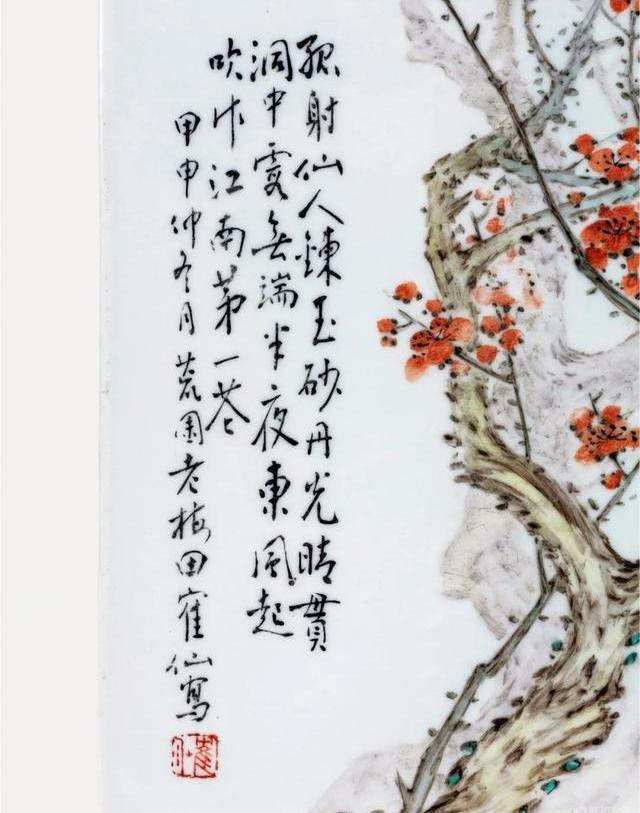 孤射仙人鍊玉砂丹光晴貫
洞中霞無端半夜東風起
吹作江南苐一花
甲申仲冬月荒園老梅田寉仙寫